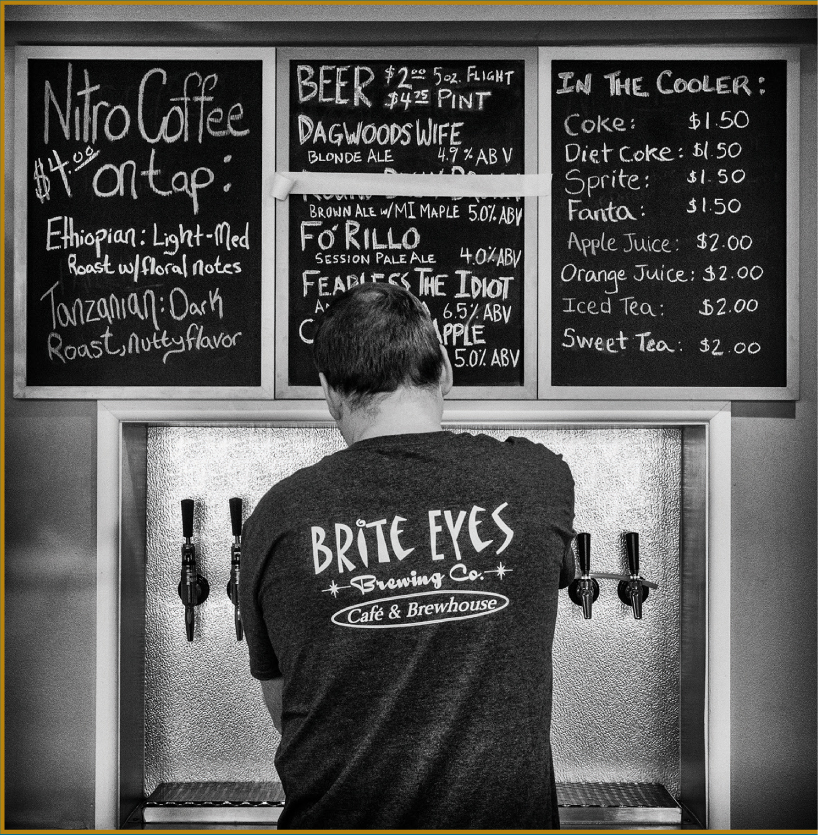 Nitro Coffee
$4.00 on tap:
Ethiopian: Light-Med
Roast w/floral notes
Tanzanian: Dark
Roast, nutty flavor
BEER $2.00 5oz. FLIGHT
$4.75 PINT
DAGWOODS WIFE
BLONDE ALE 4.9% ABV
BROWN ALE w/MI MAPLE 5.0% ABV
FO' RILLO
SESSION PALE ALE 4.0% ABV
FEARLESS THE IDIOT
6.5% ABV
5.0% ABV
IN THE COOLER:
Coke: $1.50
Diet Coke: $1.50
Sprite: $1.50
Fanta: $1.50
Apple Juice: $2.00
Orange Juice: $2.00
Iced Tea: $2.00
Sweet Tea: $2.00
BRITE EYES
Brewing Co.
Café & Brewhouse